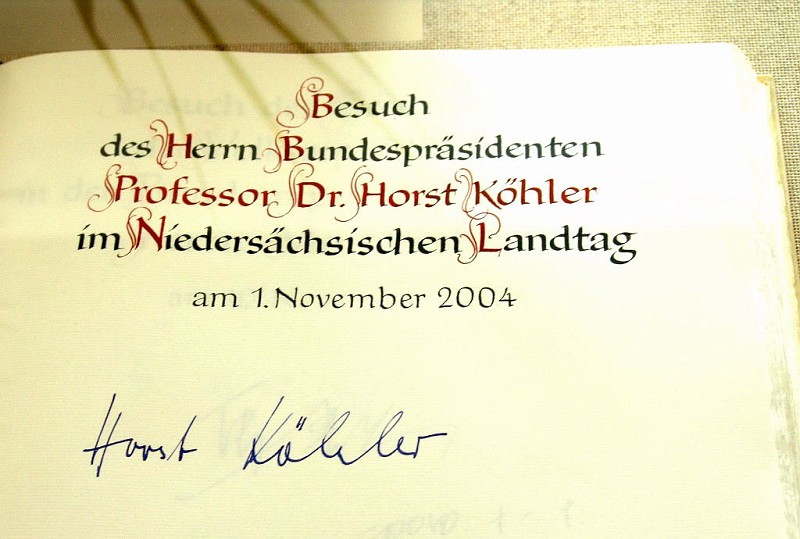 Besuch
des Herrn Bundespräsidenten
Professor Dr. Horst Köhler
im Niedersächsischen Landtag
am 1. November 2004
Horst Köhler